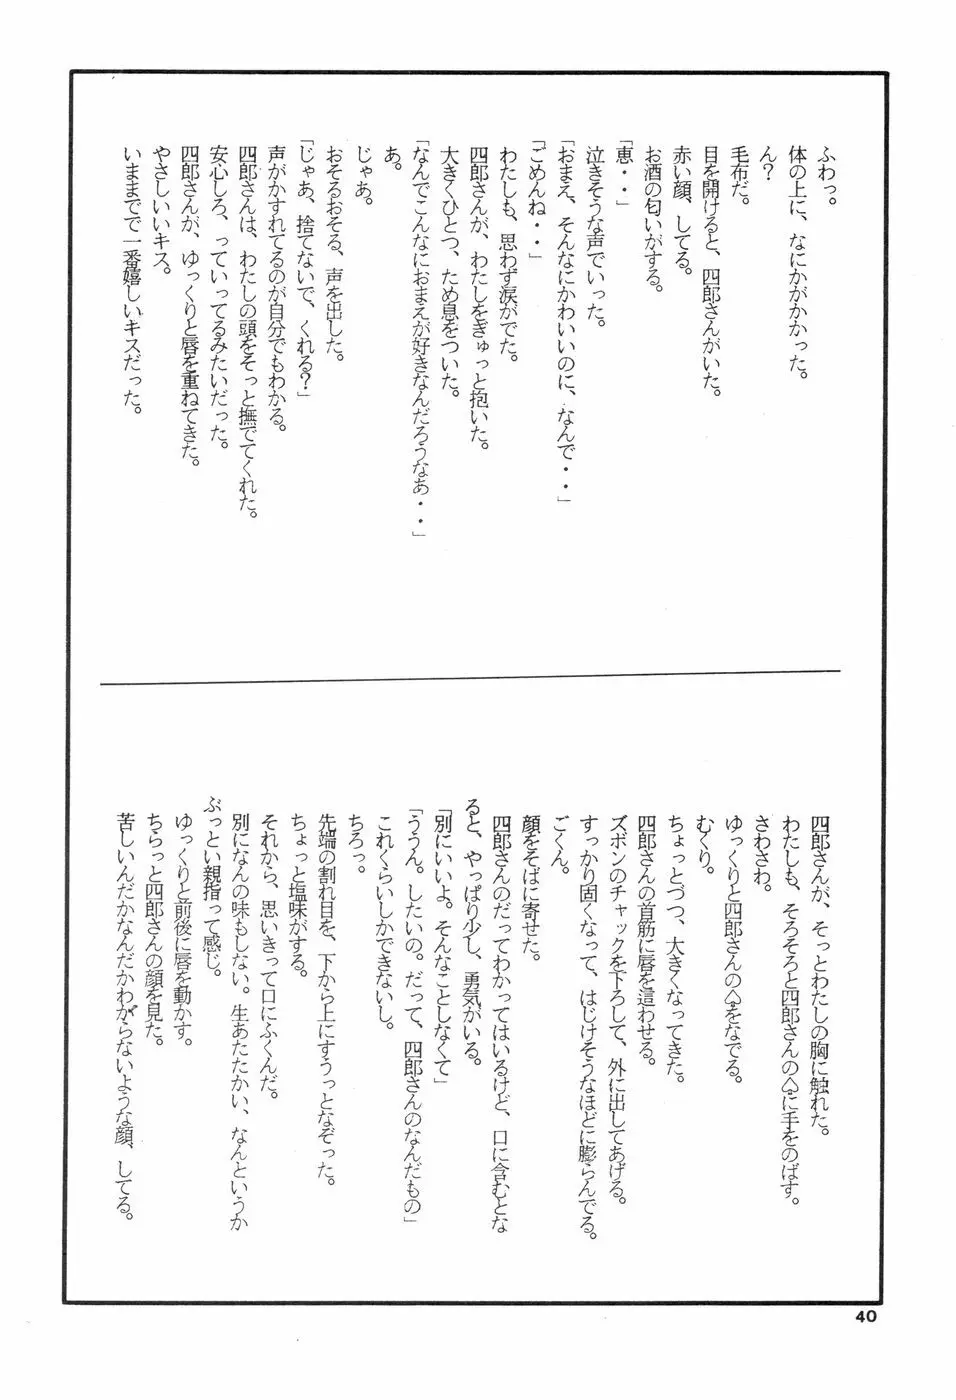 ふわっ。
体の上に、なにかがかかった。
ん?
毛布だ。
目を開けると、四郎さんがいた。
赤い顔、してる。
お酒の匂いがする。
「恵・・」
泣きそうな声でいった。
「おまえ、そんなにかわいいのに、なんで・・」
「ごめんね・・」
わたしも、思わず涙がでた。
四郎さんが、わたしをぎゅっと抱いた。
大きくひとつ、ため息をついた。
「なんでこんなにおまえが好きなんだろうなぁ・・」
あ。
じゃあ。
おそるおそる、声を出した。
「じゃあ、捨てないで、くれる?」
声がかすれてるのが自分でもわかる。
四郎さんは、わたしの頭をそっと撫でてくれた。
安心しろ、っていってるみたいだった。
四郎さんが、ゆっくりと唇を重ねてきた。
やさしいいキス。
いままでで一番嬉しいキスだった。
四郎さんが、そっとわたしの胸に触れた。
わたしも、そろそろと四郎さんの♤に手をのばす。
さわさわ。
ゆっくりと四郎さんの♤をなでる。
むくり。
ちょっとづつ、大きくなってきた。
四郎さんの首筋に唇を這わせる。
ズボンのチャックを下ろして、外に出してあげる。
すっかり固くなって、はじけそうなほどに膨らんでる。
ごくん。
顔をそばに寄せた。
四郎さんのだってわかってはいるけど、口に含むとな
ると、やっぱり少し、勇気がいる。
「別にいいよ。そんなことしなくて」
「ううん。したいの。だって、四郎さんのなんだもの」
これくらいしかできないし。
ちろっ。
先端の割れ目を、下から上にすうっとなぞった。
ちょっと塩味がする。
それから、思いきって口にふくんだ。
別になんの味もしない。生あたたかい、なんというか
ぶっとい親指って感じ。
ゆっくりと前後に唇を動かす。
ちらっと四郎さんの顔を見た。
苦しいんだかなんだかわがらないような顔、してる。
40